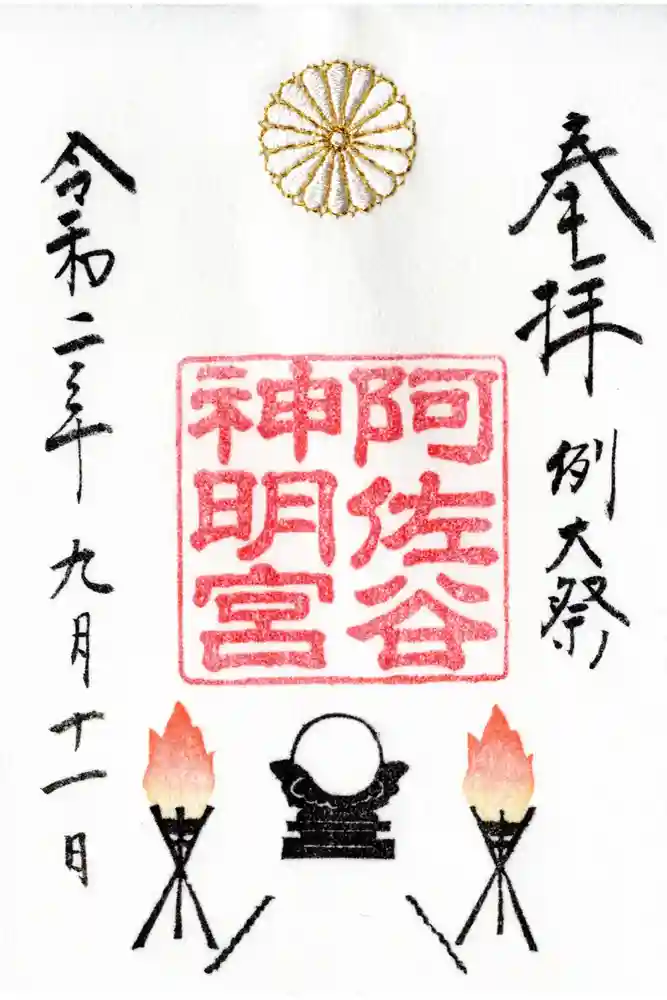 奉拝 例大祭
阿佐谷
神明宮
令和二年 九月十一日